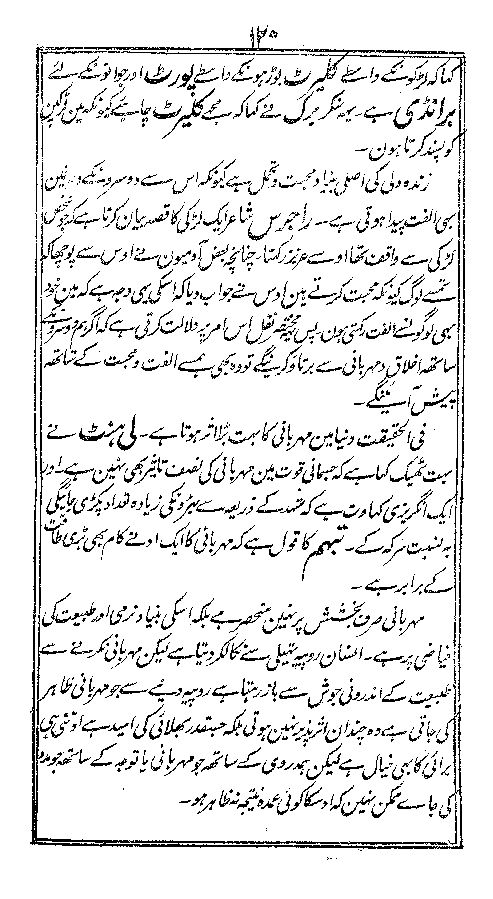 ۱۲۰
کہا کہ لڑکونکے واسطے کلیرٹ بوڑہونکے واسطے پورٹ اور جوانونکے لئے
برانڈی ہے۔ یہ سنکر برک نے کہا کہ مجھے کلیرٹ چاہیے کیونکہ مین لڑکپن
کو پسند کرتا ہون۔
زندہ دلی کی اصلی بنیاد محبت و تحمل ہے کیونکہ اس سے دوسرونکے دلونمین
بھی الفت پیدا ہوتی ہے۔ راجرس شاعر ایک لڑکی کا قصہ بیان کرتا ہے کہ جو شخص
لڑکی سے واقف تھا اوسے عزیز رکھتا۔ چنانچہ بعض آدمیون نے اوس سے پوچھا کہ
تمسے لوگ کیونکہ محبت کرتے ہین اوس نے جواب دیا کہ اسکی یہی وجہ ہے کہ مین خود
بھی لوگونسے الفت رکھتی ہون۔ پس یہ مختصر نقل اس امر پر دلالت کرتی ہے کہ اگر ہم دوسرونکے
ساتھہ اخلاق و مہربانی سے برتاو کرینگے تو وہ بھی ہمسے الفت و محبت کے ساتھہ
پیش آئینگے۔
فی الحقیقت دنیا مین مہربانی کا بہت بڑا اثر ہوتا ہے۔ لی ہنٹ نے
بہت ٹھیک کہا ہے کہ جسمانی قوت مین مہربانی کی نصف تاثیر بھی نہین ہے۔ اور
ایک انگریزی کہاوت ہے کہ شہد کے ذریعہ سے بھڑونکی زیادہ تعداد پکڑی جائیگی
بہ نسبت سرکہ کے۔ بنتہم کا قول ہے کہ مہربانی کا ایک ادنے کام بھی بڑی طاقت
کے برابر ہے۔
مہربانی صرف بخشش پر نہین منحصر ہے بلکہ اسکی بنیاد نرمی اور طبیعت کی
فیاضی پر ہے۔ انسان روپیہ تھیلی سے نکالکر دیتا ہے لیکن مہربانی کرنے سے
طبیعت کے اندرونی جوش سے باز رہتا ہے روپیہ دینے سے جو مہربانی ظاہر
کی جاتی ہے وہ چندان اثر پذیر نہین ہوتی بلکہ جسقدر بھلائی کی امید ہے اوتنی ہی
برائی کا بھی خیال ہے لیکن ہمدردی کے ساتھہ جو مہربانی یا توجہ کے ساتھہ جو مدد
کی جاے ممکن نہین کہ اوسکا کوئی عمدہ نتیجہ نہ ظاہر ہو۔